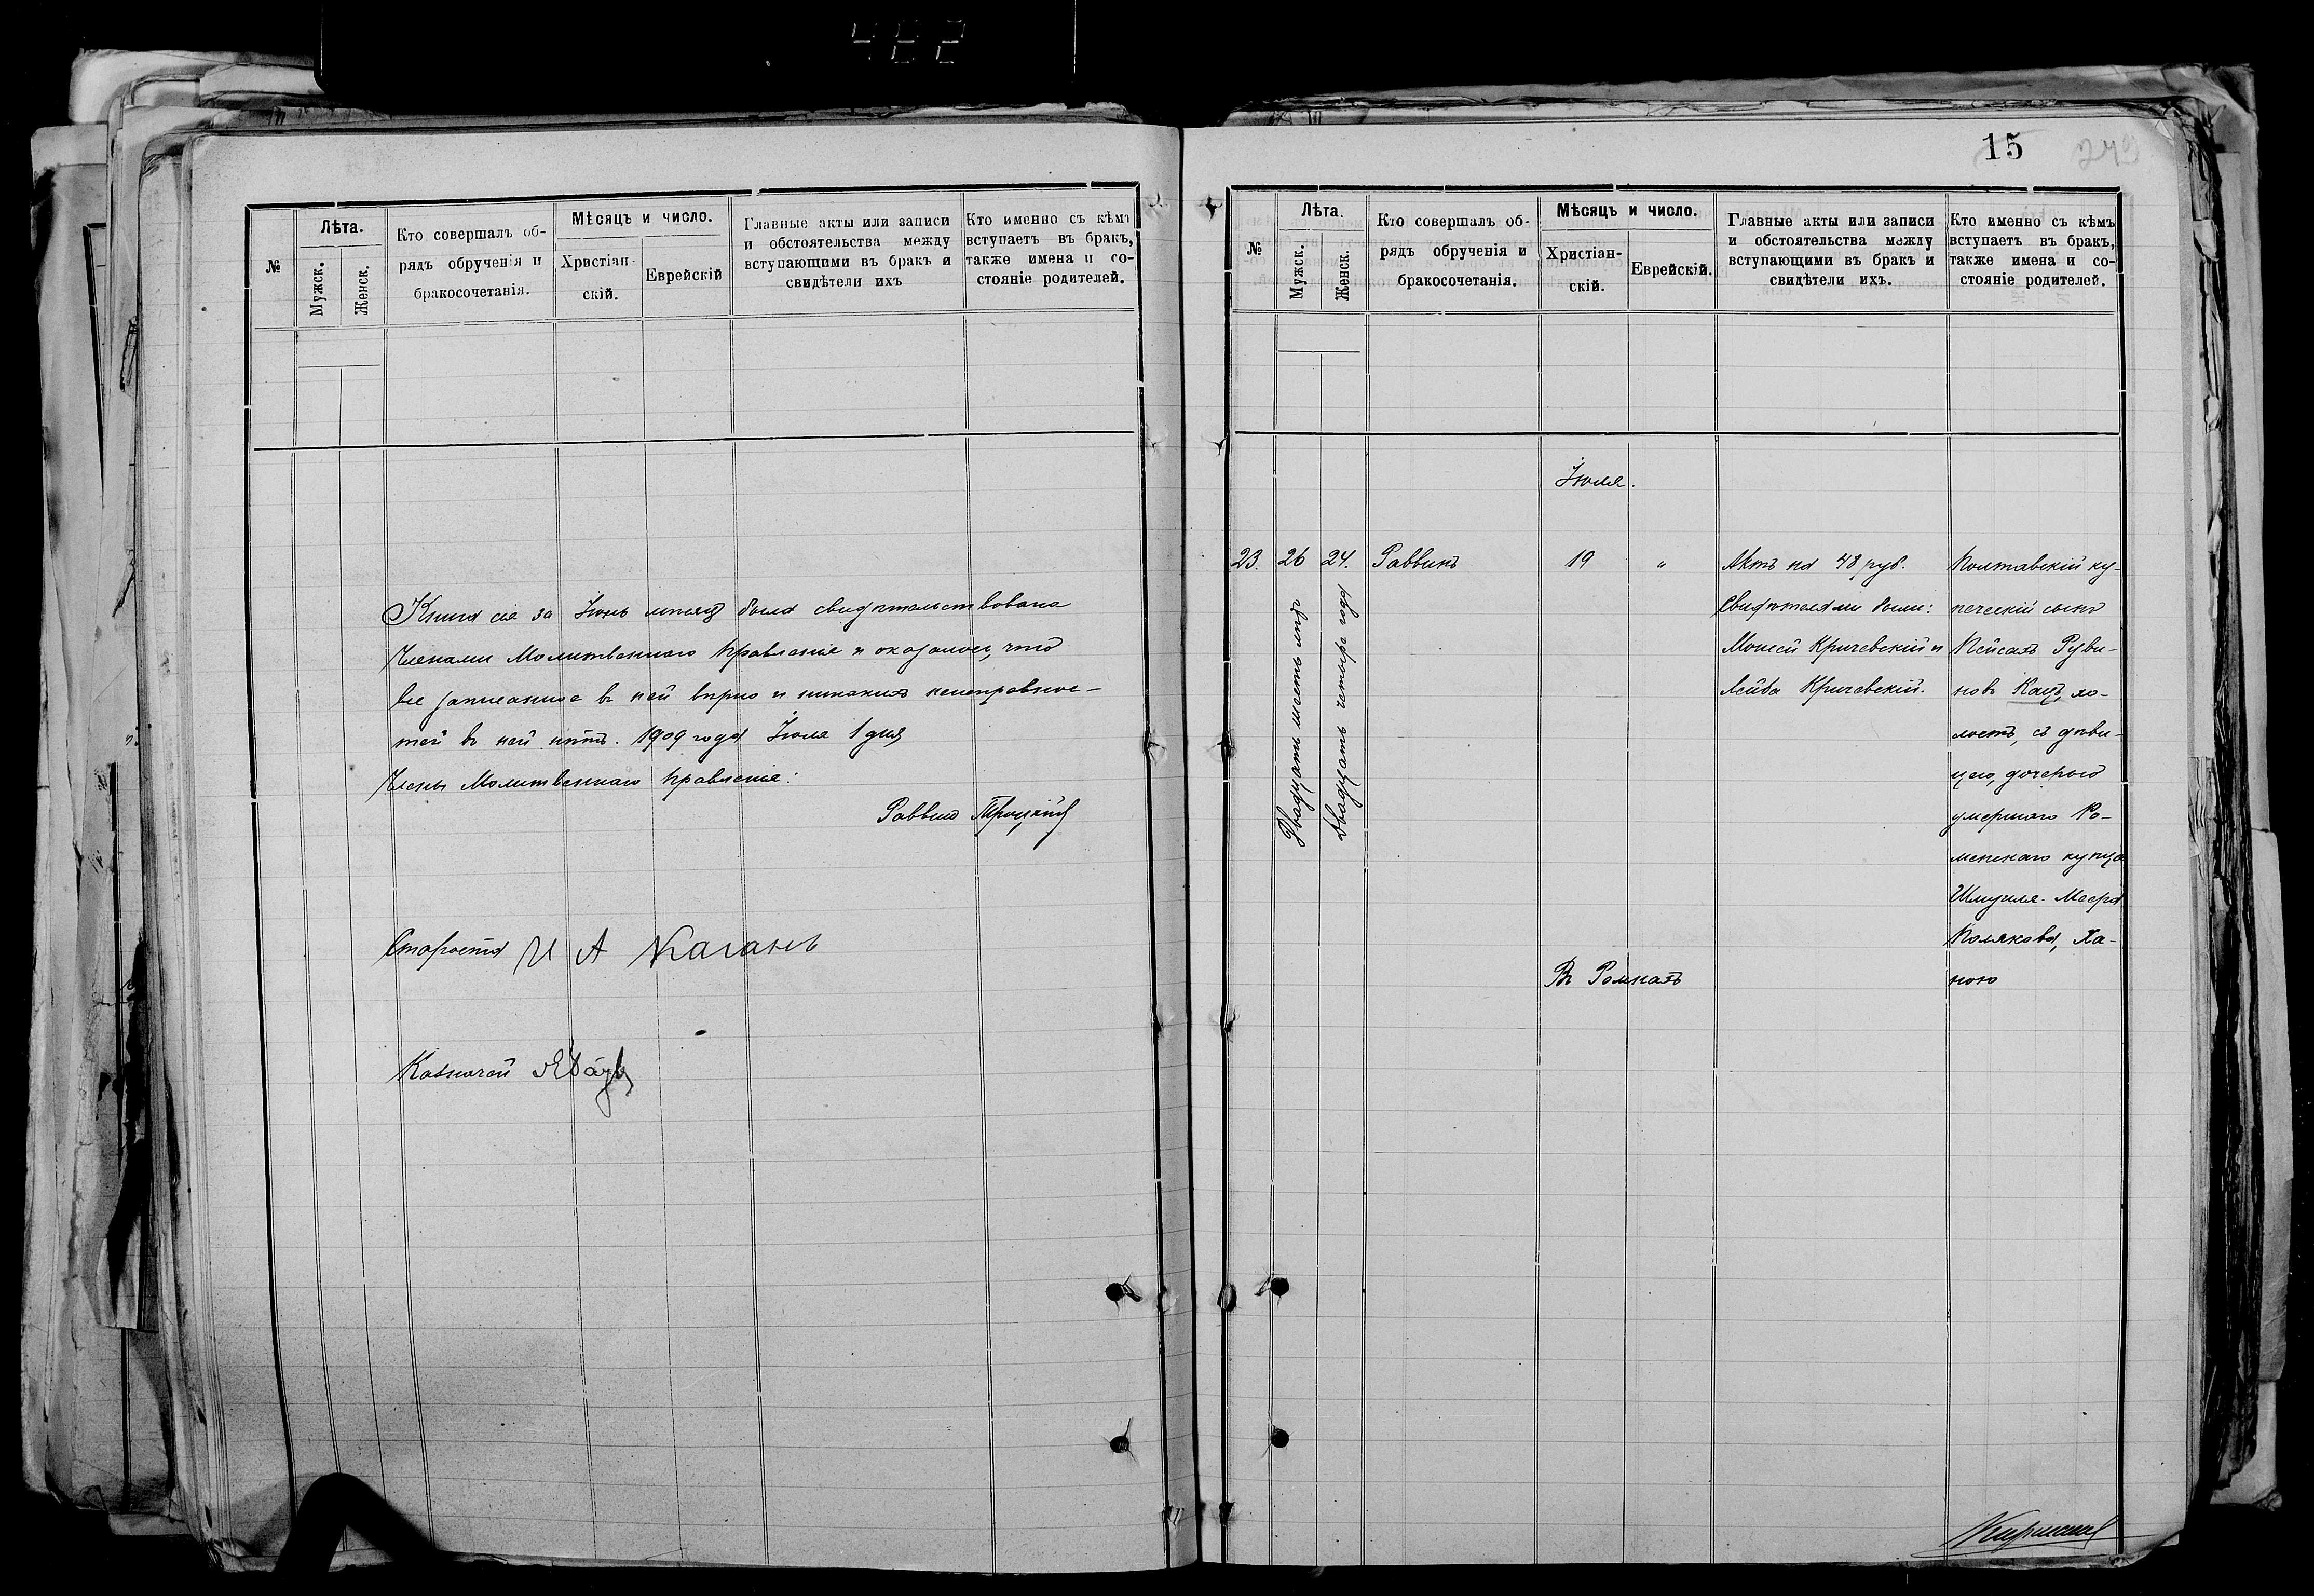 462
№
Лѣта.
Мужск.
Женск.
Кто совершалъ об-
рядъ обрученія и
бракосочетанія.
Мѣсяцъ и число.
Христіан-
скій.
Еврейскій
Главные акты или записи
и обстоятельства между
вступающими въ бракъ и
свидѣтели ихъ
Кто именно съ кѣмъ
вступаетъ въ бракъ,
также имена и со-
стояніе родителей.
Книга сія за Іюнь мѣсяцъ была свидѣтельствована
Членами Молитвеннаго Правленія и оказалось, что
все записанное въ ней вѣрно и никакихъ неисправнос-
тей въ ней нѣтъ. 1909 года Іюля 1 дня
Члены Молитвеннаго Правленія:
Раввинъ Троцкій
Староста И А Каганъ
Казначей
15
№
Лѣта.
Мужск.
Женск.
Кто совершалъ об-
рядъ обрученія и
бракосочетанія.
Мѣсяцъ и число.
Христіан-
скій.
Еврейскій.
Главные акты или записи
и обстоятельства между
вступающими въ бракъ и
свидѣтели ихъ.
Кто именно съ кѣмъ
вступаетъ въ бракъ,
также имена и со-
стояніе родителей.
Іюля.
23.
26
Двадцать шесть лѣтъ
24.
Двадцать четыре года
Раввинъ
19
"
Въ Ромнахъ
Актъ на 48 руб.
Свидѣтелями были:
Моисей Кричевскій и
Лейба Кричевскій.
Полтавскій ку-
печескій сынъ
Пейсахъ Руви-
новъ Кацъ, хо-
лостъ, съ дѣви-
цею, дочерью
умершаго Ро-
менскаго купца
Шмуиля-Меера
Полякова, Ха-
ною